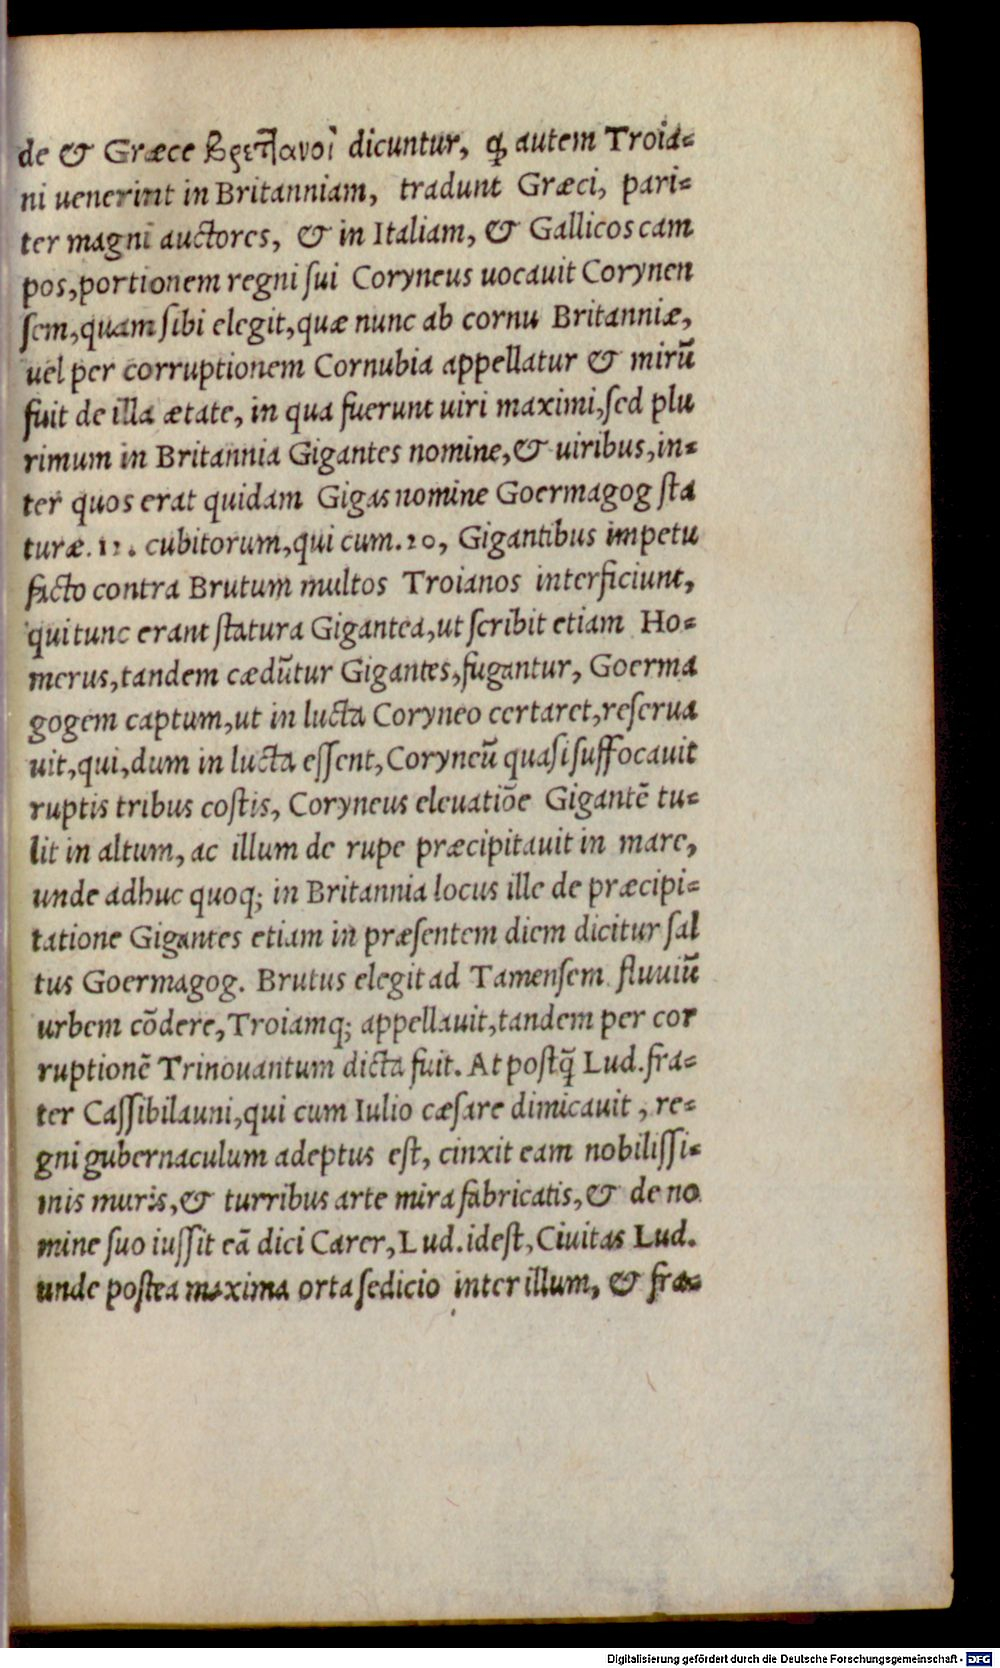 de & Græce Βρετῆανοὶ dicuntur, ꝙ autem Troia=
ni uenerint in Britanniam, tradunt Græci, pari=
ter magni auctores, & in Italiam, & Gallicos cam
pos,portionem regni ſui Coryneus uocauit Corynen
ſem,quam ſibi elegit,quæ nunc ab cornu Britanniæ,
uel per corruptionem Cornubia appellatur & mirũ
fuit de illa ætate, in qua fuerunt uiri maximi,ſed plu
rimum in Britannia Gigantes nomine,& uiribus,in=
ter quos erat quidam Gigas nomine Goermagog ſta
turæ.12. cubitorum,qui cum.20, Gigantibus impetu
facto contra Brutum multos Troianos interficiunt,
qui tunc erant ſtatura Gigantea,ut ſcribit etiam Ho=
merus,tandem cædũtur Gigantes,fugantur, Goerma
gogem captum,ut in lucta Coryneo certaret,reſerua
uit,qui,dum in lucta eſſent,Coryneũ quaſi ſuffocauit
ruptis tribus coſtis, Coryneus eleuatiõe Gigantẽ tu=
lit in altum, ac illum de rupe præcipitauit in mare,
unde adhuc quoq; in Britannia locus ille de præcipi=
tatione Gigantes etiam in præſentem diem dicitur ſal
tus Goermagog. Brutus elegit ad Tamenſem fluuiũ
urbem cõdere,Troiamq; appellauit,tandem per cor
ruptionẽ Trinouantum dicta fuit. At poſtq̃ Lud.fra=
ter Caſſibilauni,qui cum Iulio cæſare dimicauit, re=
gni gubernaculum adeptus eſt, cinxit eam nobiliſſi=
mis muris,& turribus arte mira fabricatis,& de no
mine ſuo iuſſit eã dici Carer,Lud.ideſt,Ciuitas Lud.
unde poſtea maxima orta ſedicio inter illum, & fra=
Digitalisierung gefördert durch die Deutsche Forschungsgemeinschaft - DFG